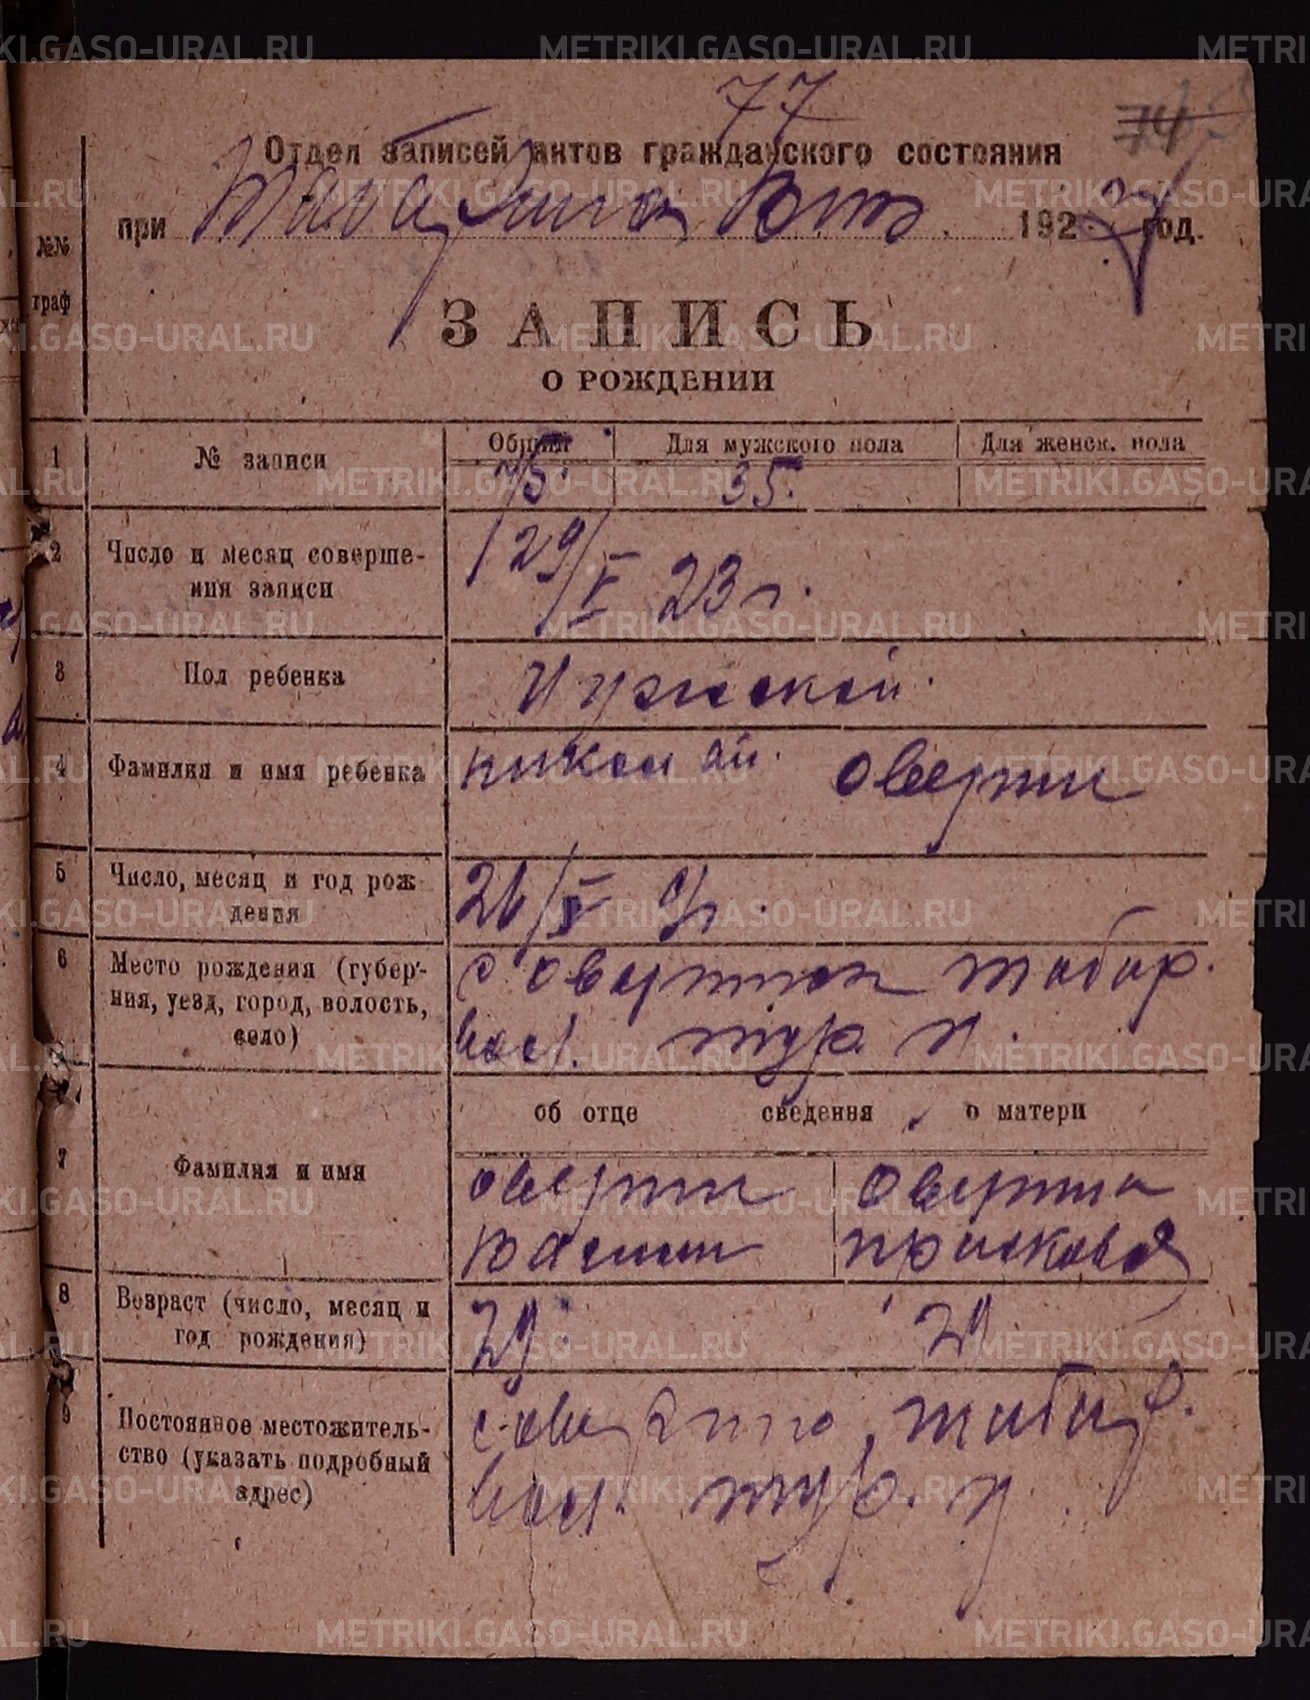 77
74
Отдел записей актов гражданского состояния
при Табаринск 1923 год.
№№ граф
ЗАПИСЬ
О РОЖДЕНИИ
1 № записи Общий Для мужского пола Для женск. пола
75. 35.
2 Число и месяц соверше-
ния записи
29/V 23 г.
3 Пол ребенка Мужской.
4 Фамилия и имя ребенка Николай. Оверин
5 Число, месяц и год рож-
дения
26/V с/г.
6 Место рождения (губер-
ния, уезд, город, волость,
село)
с Оверинск табар.
вол. тур. у.
об отце сведения о матери
7 Фамилия и имя
Оверин Оверина
Василий Прасковья
8 Возраст (число, месяц и
год рождения)
29. 29.
9 Постоянное местожитель-
ство (указать подробный
адрес)
с. табар.
вол. тур. у.
METRIKI.GASO-URAL.RU